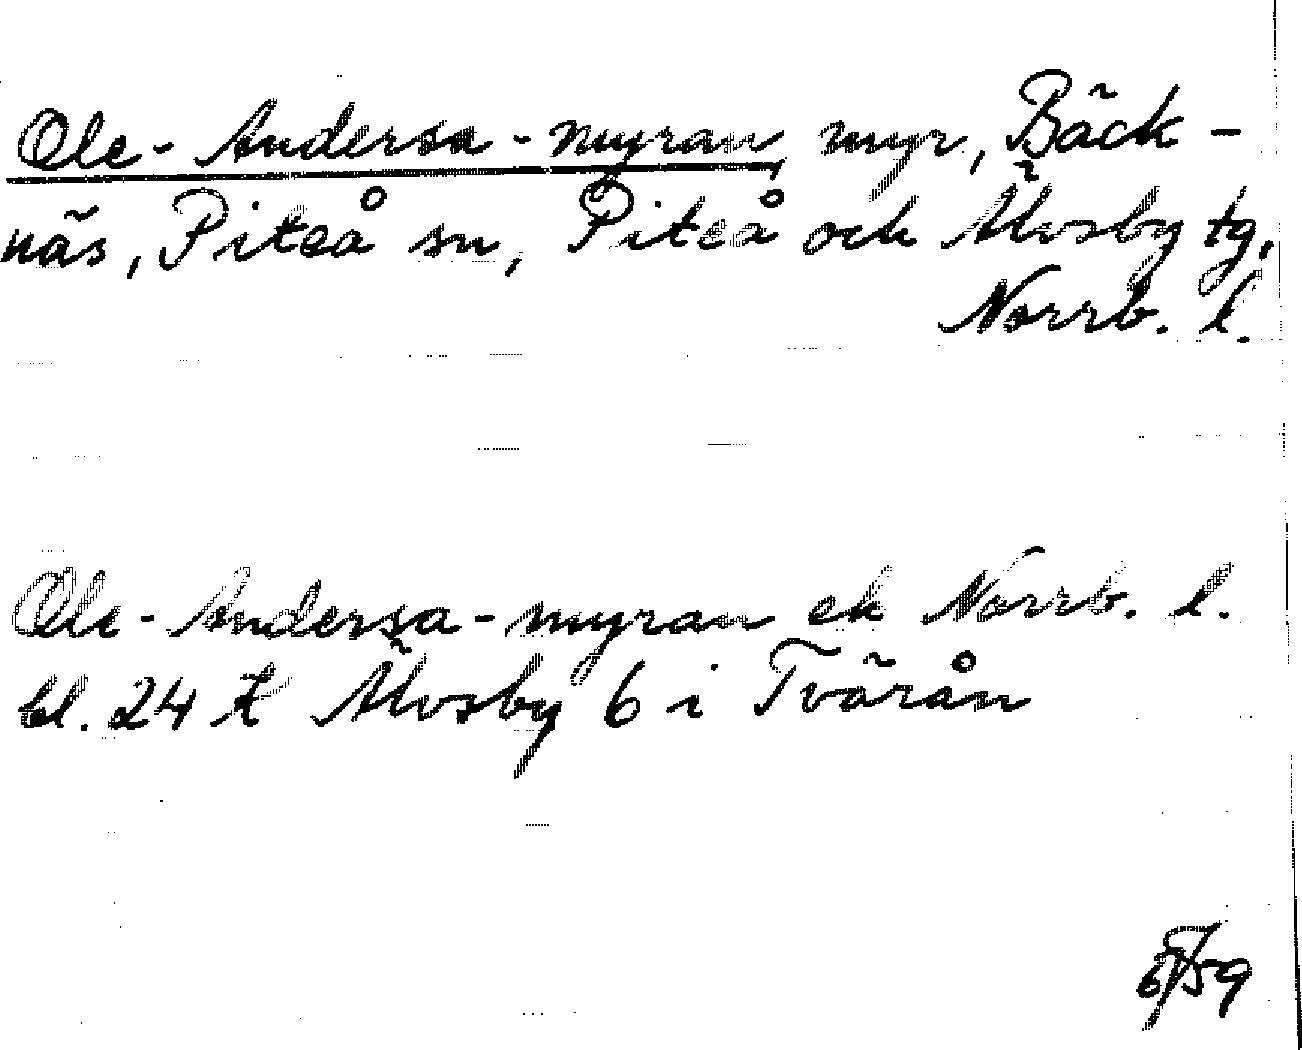 Ole-Andersa-myran, myr, Bäck-
näs, Piteå sn, Piteå och Älvsby tg,
Norrb. l.
Ole-Andersa-myran ek Norrb. l.
bl. 24 t Älvsby 6 i Tvärån